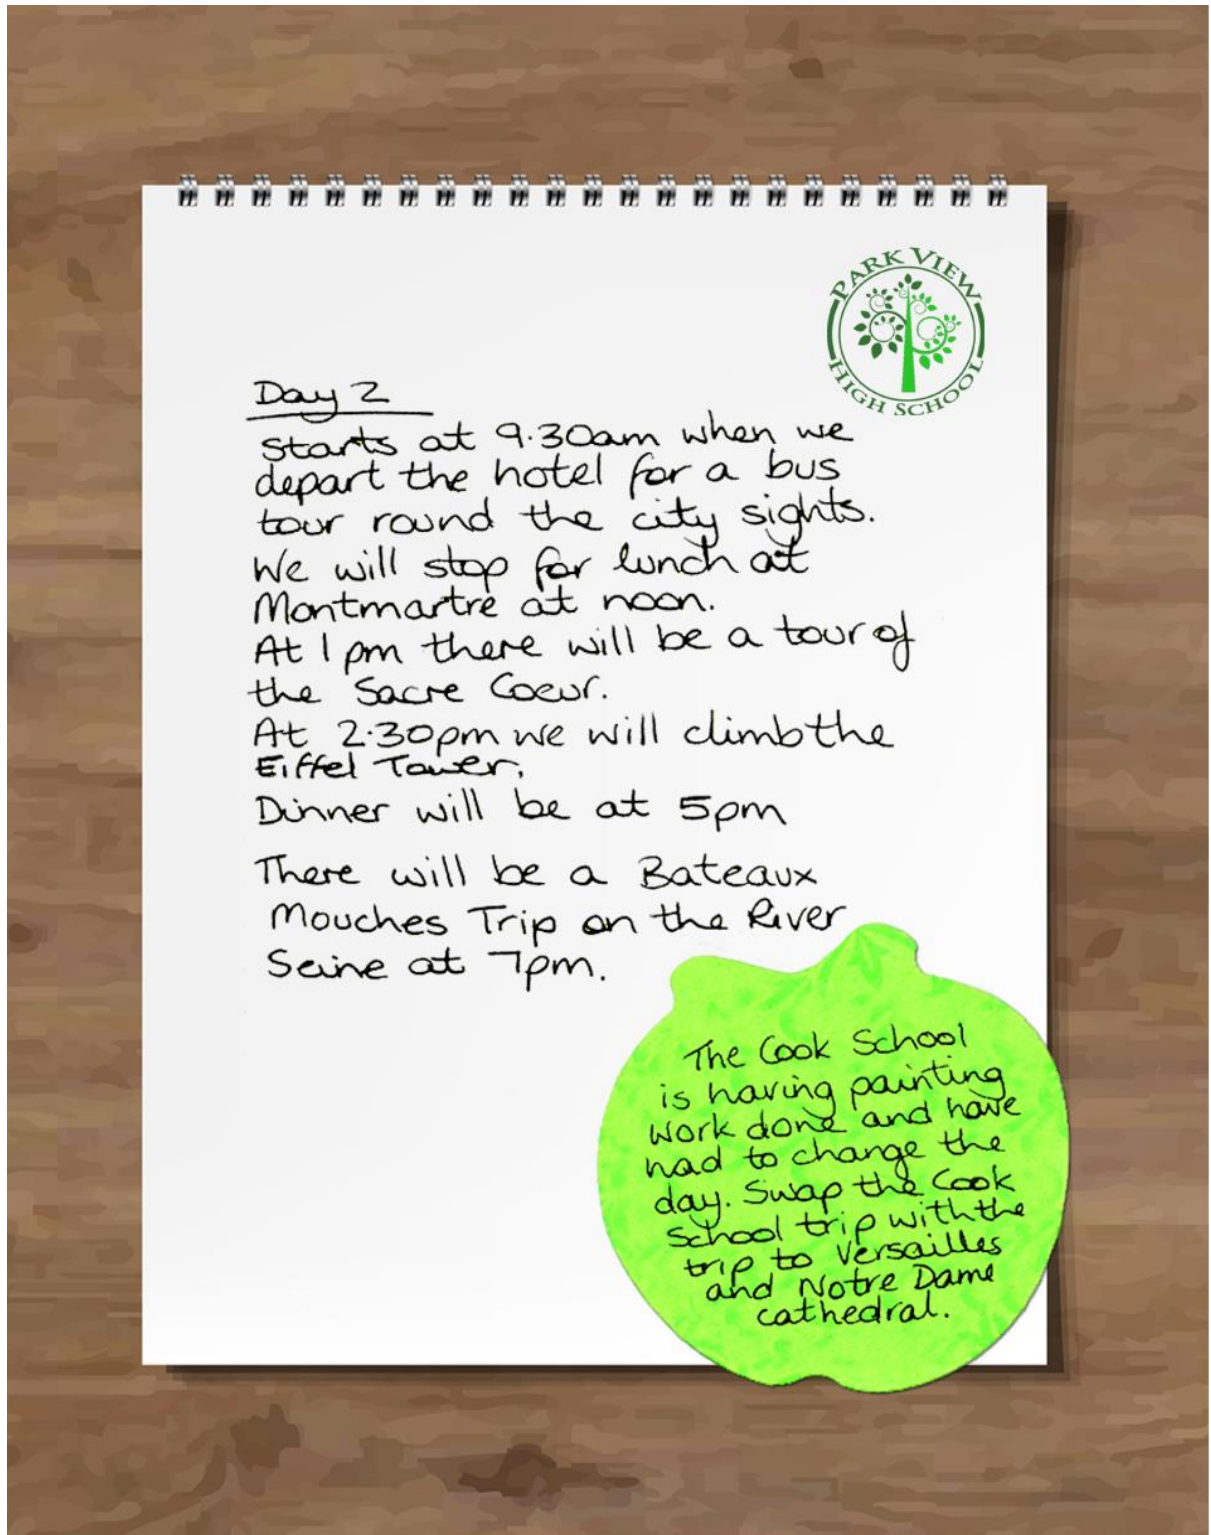 PARK VIEW
HIGH SCHOOL
Day 2
Starts at 9.30am when we
depart the hotel for a bus
tour round the city sights.
We will stop for lunch at
Montmartre at noon.
At 1pm there will be a tour of
the Sacre Coeur.
At 2.30pm we will climb the
Eiffel Tower.
Dinner will be at 5pm
There will be a Bateaux
Mouches Trip on the River
Seine at 7pm.
The Cook School
is having painting
work done and have
had to change the
day. Swap the Cook
School trip with the
trip to Versailles
and Notre Dame
cathedral.